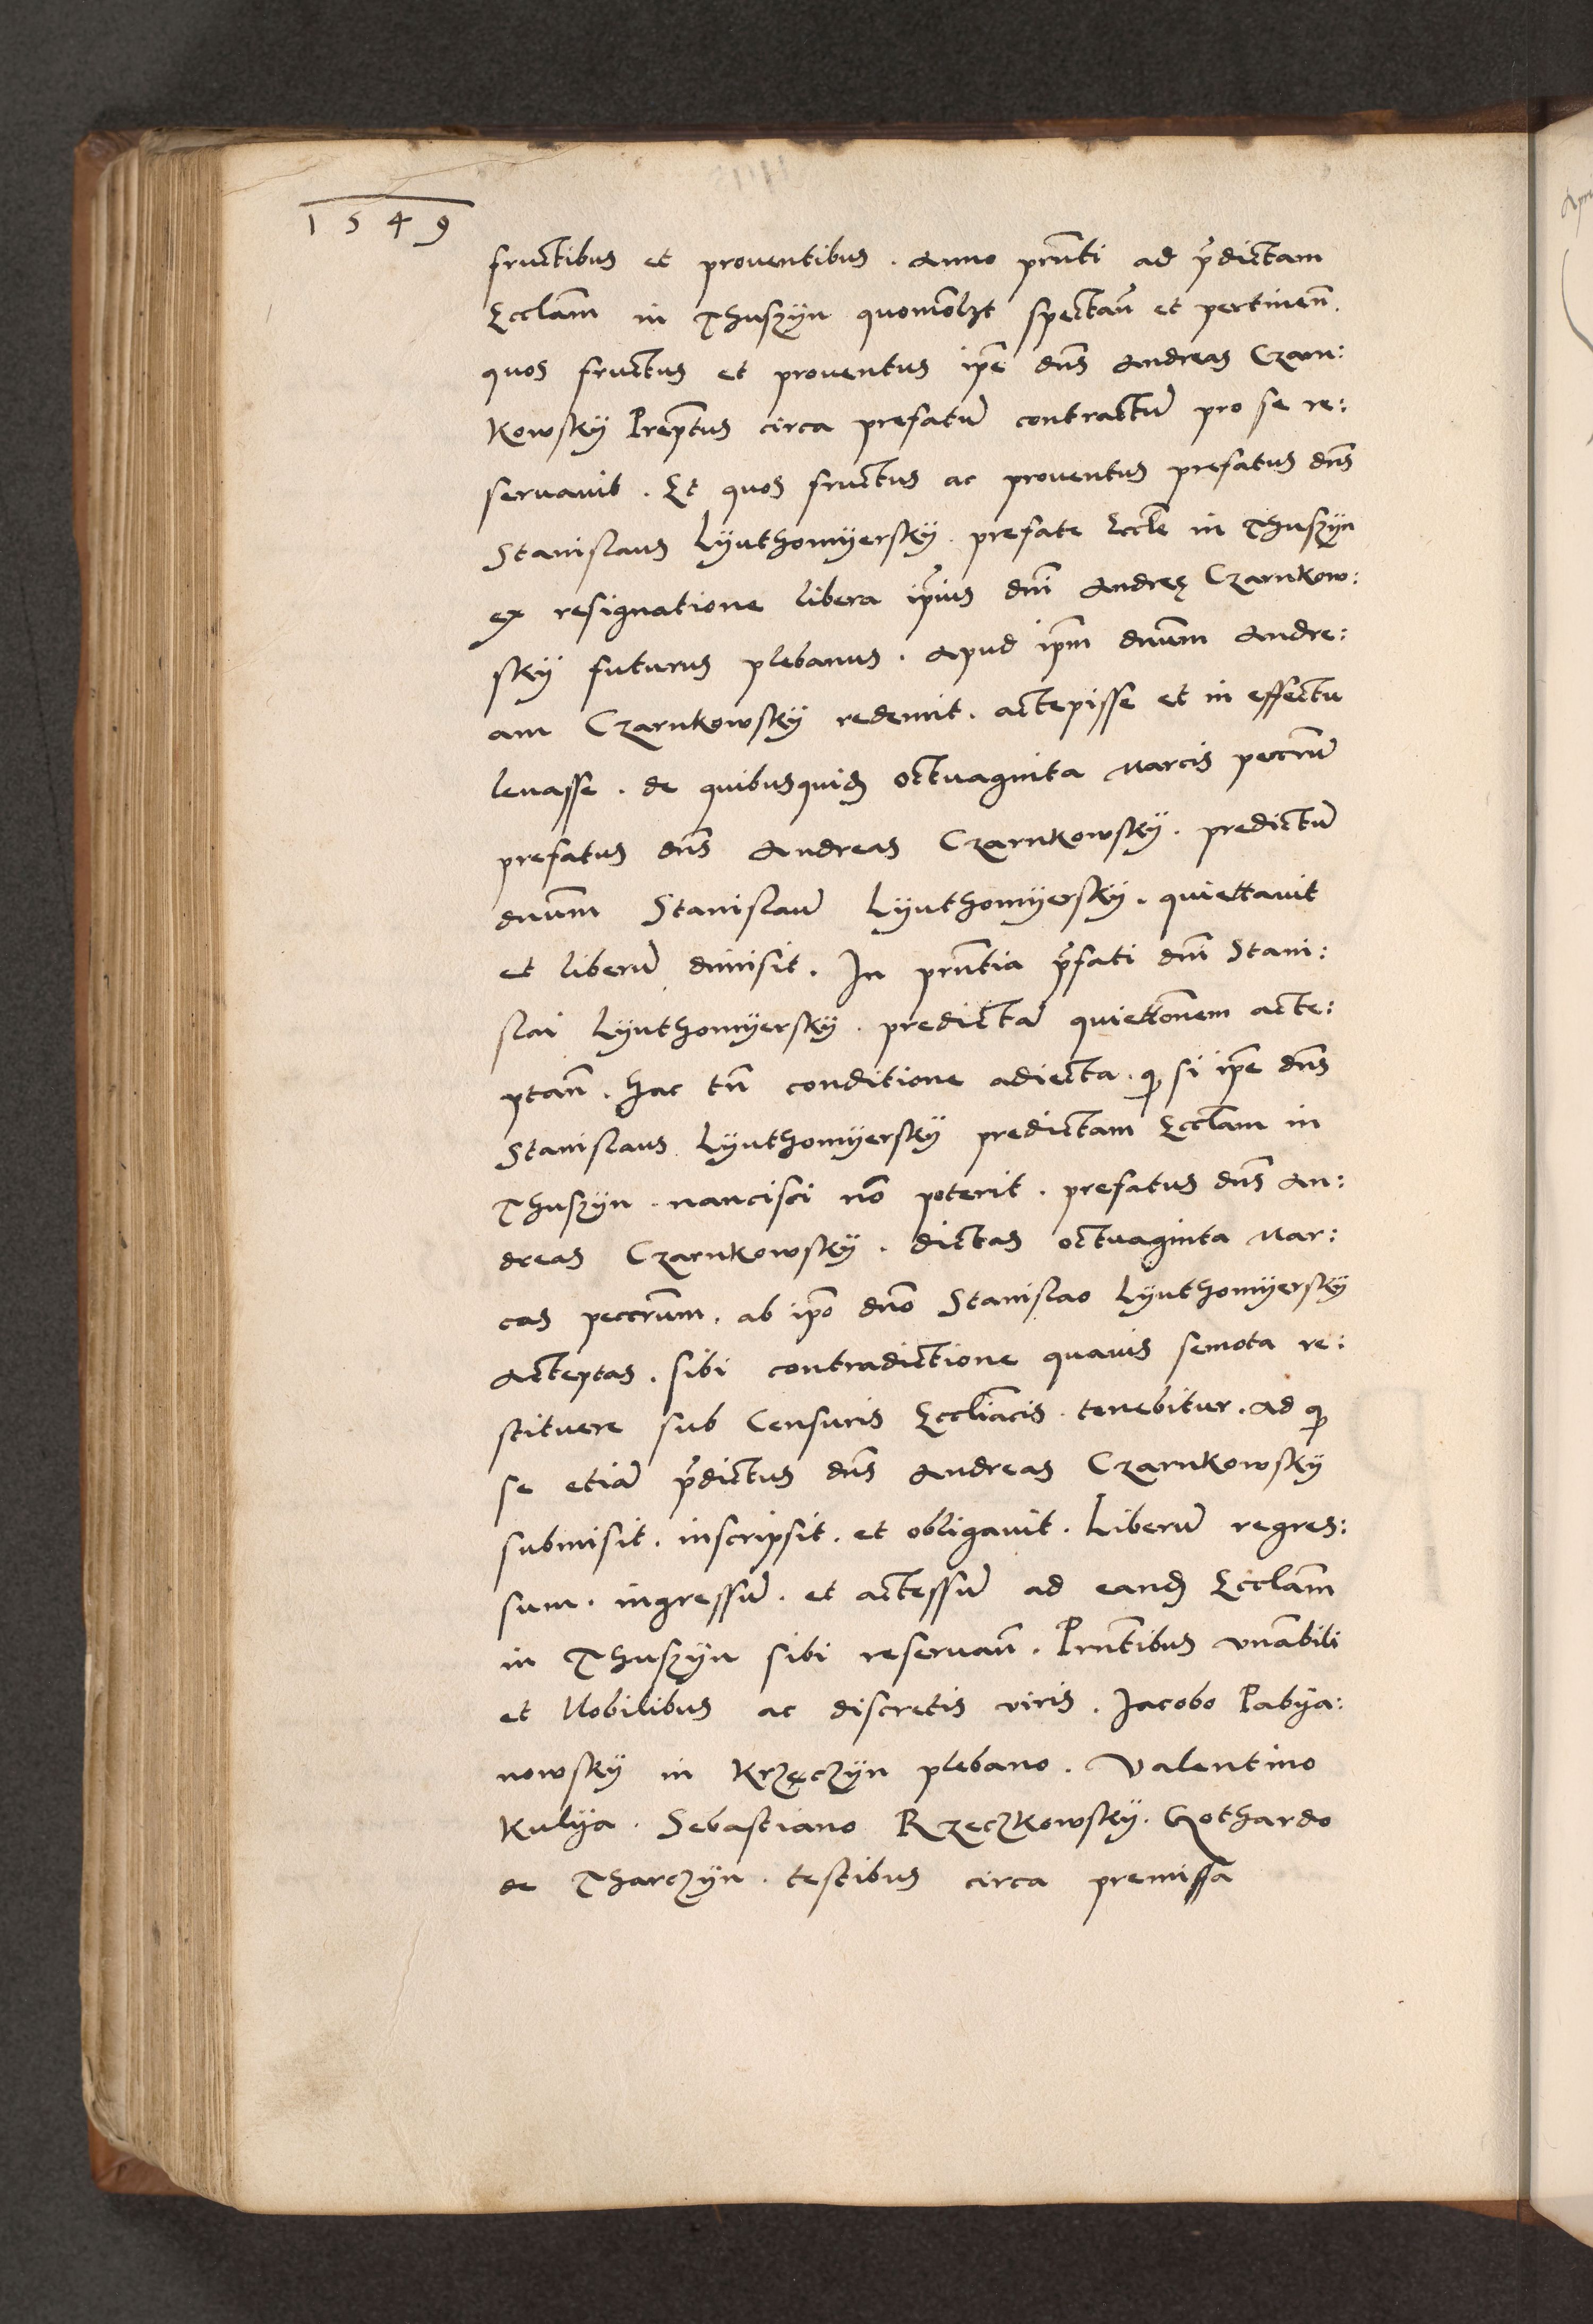 1549
fructibus et proventibus . Anno prn̄ti ad p̄dictam
Eccl̄am in Thuszyn quomōlȝt spectan̄ et pertinen̄.
quos fructus et proventus ip̄e dn̄s Andreas Czarn:
kowsky Prep̄tus circa prefatū contractū pro se re:
servavit . Et quos fructus ac proventus prefatus dn̄s
Stanislaus Lyuthomyersky . prefate Eccl̄e in Thuszyn
ex resignatione libera ip̄ius dn̄i Andreę Czarnkow:
sky futurus plebanus . Apud ip̄m dn̄um Andre:
am Czarnkowsky redemit . accepisse et in effectu
levasse . de quibusquidȝ octuaginta Marcis peccn̄rū
prefatus dn̄s Andreas Czarnkowsky . predictū
dn̄um Stanislaū Lyuthomyersky . quiettavit
et liberū dimisit . In prn̄tia p̄fati dn̄i Stani:
slai Lyuthomyersky . predictā quiettōnem acce:
ptan̄ . hac tn̄ conditione adiecta . ꝙ si ip̄e dn̄s
Stanislaus Lyuthomyersky predictam Eccl̄am in
Thuszyn . nancisci nō poterit . prefatus dn̄s An:
dreas Czarnkowsky . dictas octuaginta Mar:
cas peccn̄rum . ab ip̄o dn̄o Stanislao Lyuthomyersky
Acceptas . sibi contradictione quavis semota re:
stituere sub Censuris Eccl̄iacis . tenebitur . Ad ꝙ
se etiā p̄dictus dn̄s Andreas Czarnkowsky
submisit . inscripsit . et obligavit . Liberū regres:
sum . ingressū . et accessū ad eandȝ Eccl̄am
in Thuszyn sibi reservan̄ . Prn̄tibus vn̄abili
et Nobilibus ac discretis viris . Jacobo Pabya:
nowsky in Krzęczyn plebano . Valentino
Kulya . Sebastiano Rzeczkowsky . Gothardo
de Tharczyn . testibus circa premissa